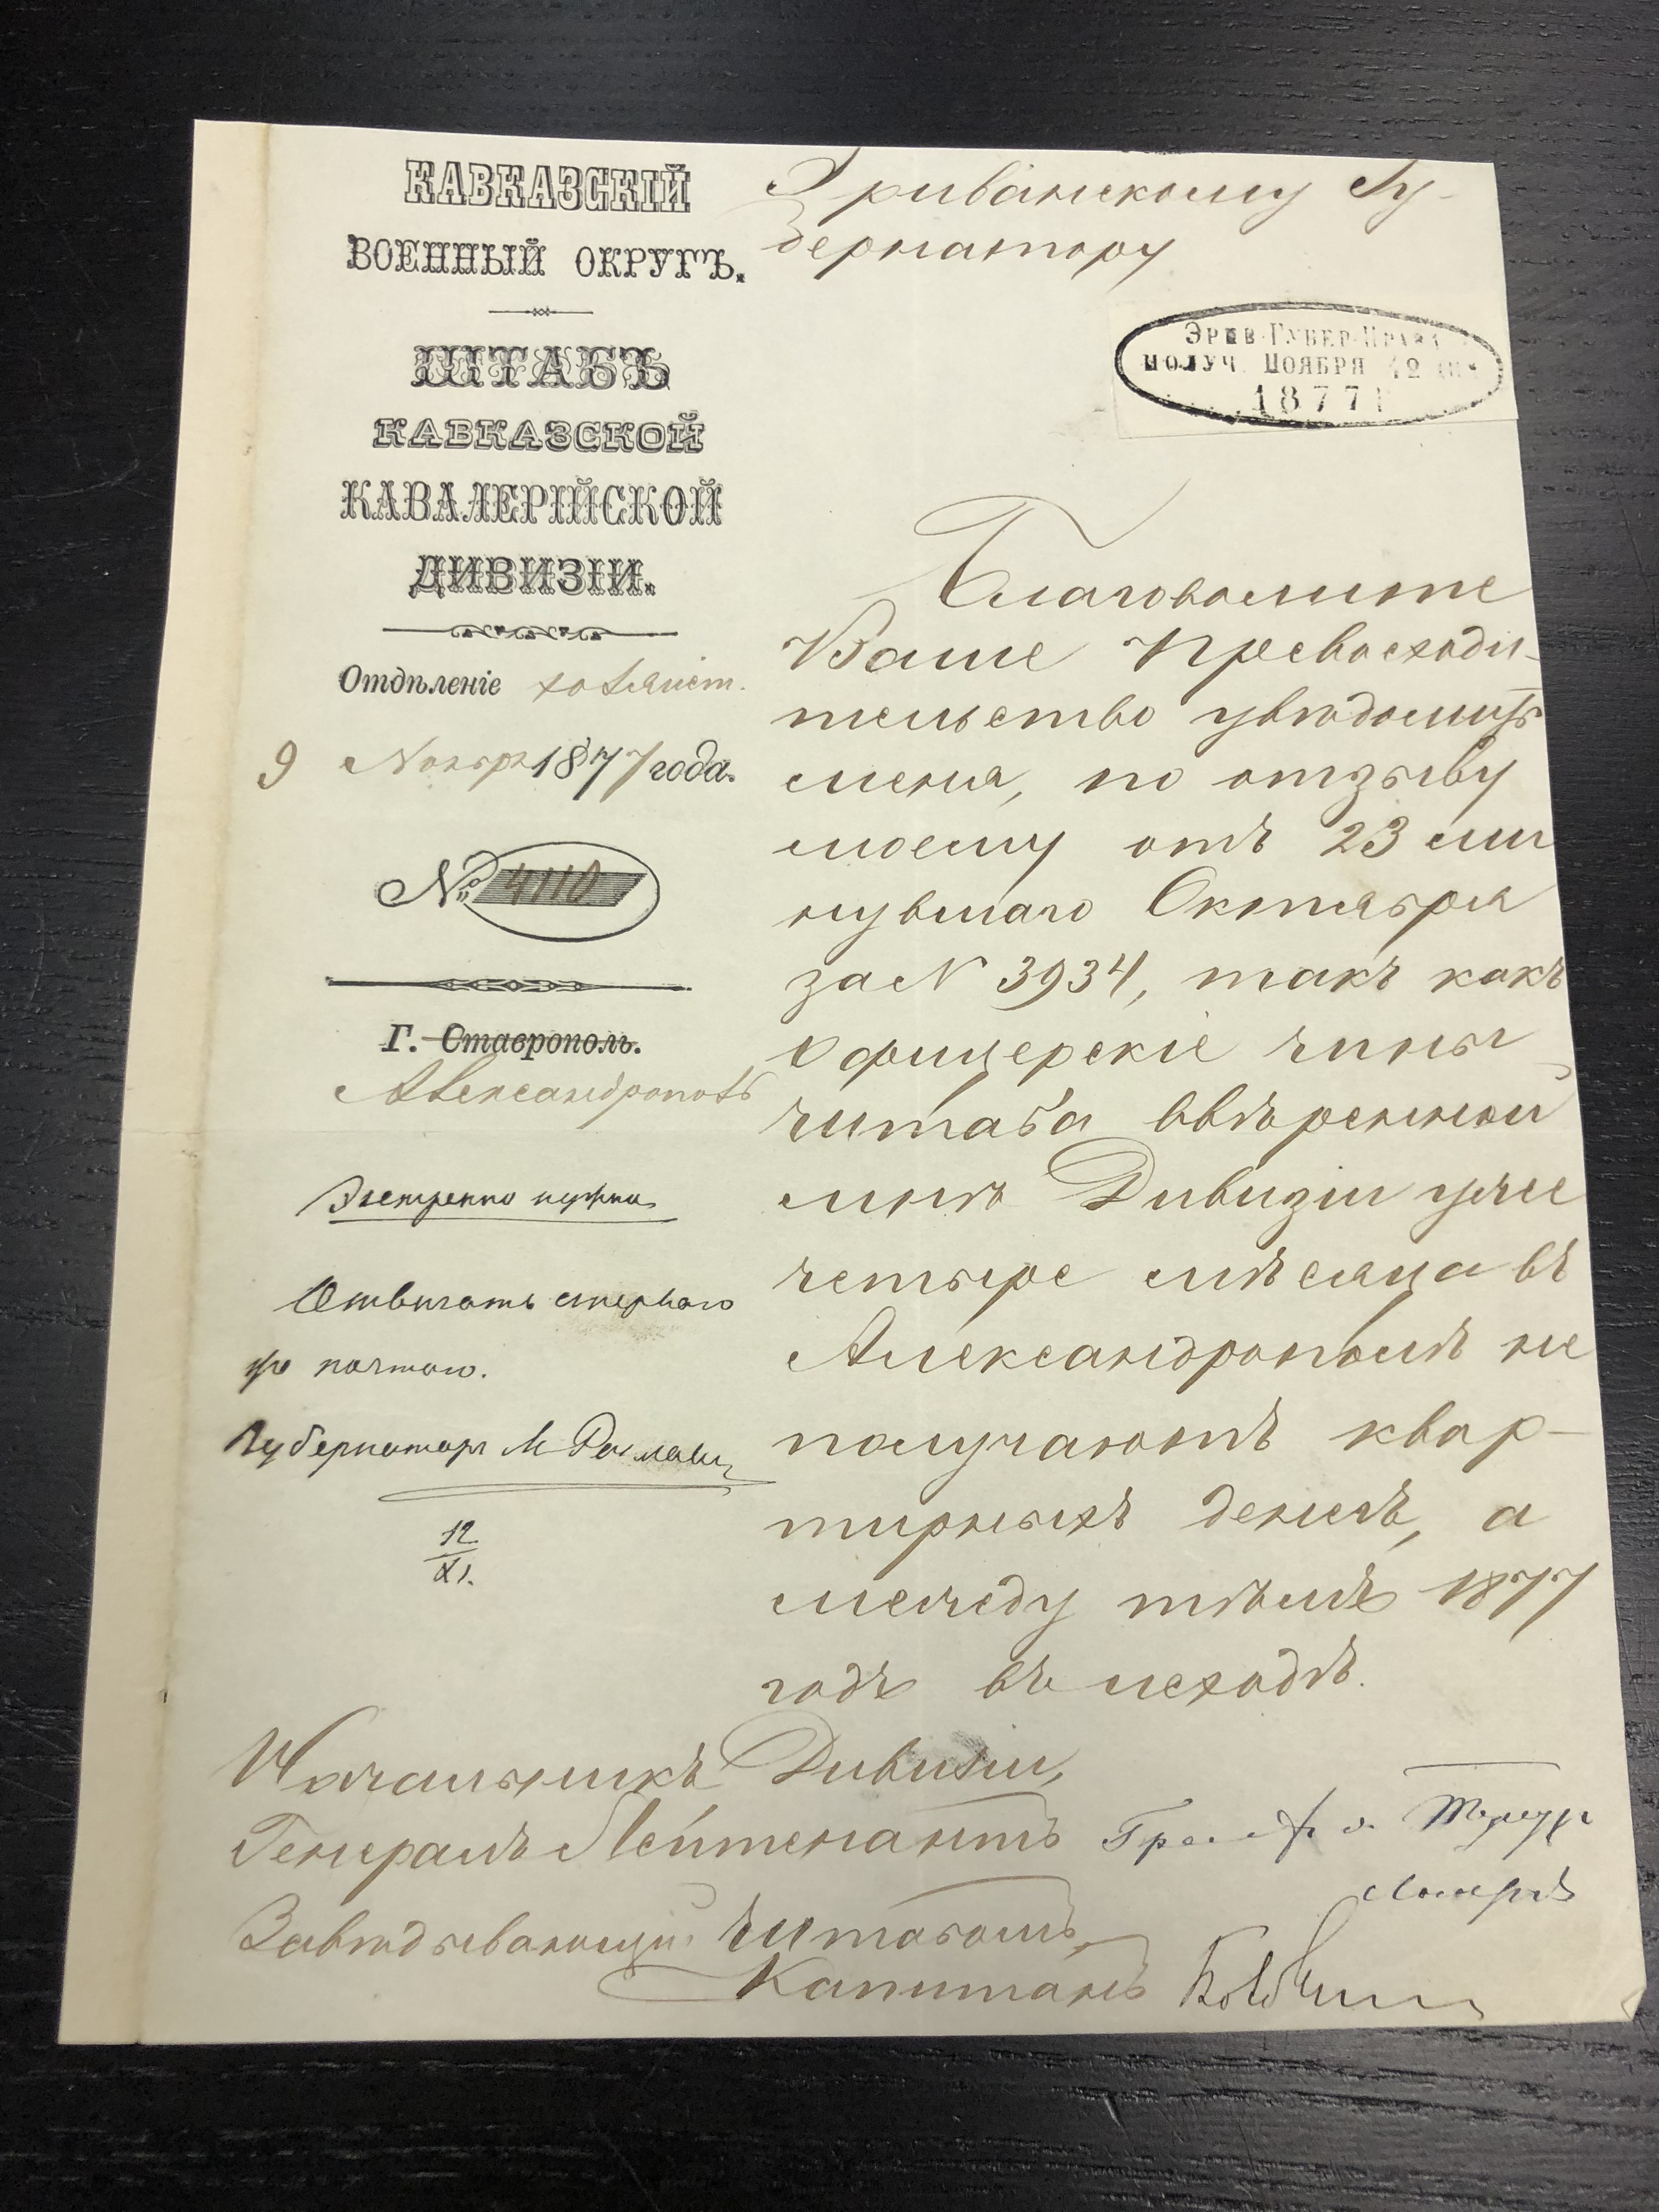 КАВКАЗСКІЙ
ВОЕННЫЙ ОКРУГЪ.
ШТАБЪ
КАВКАЗСКОЙ
КАВАЛЕРІЙСКОЙ
ДИВИЗІИ.
Отдѣленіе хозяйст.
9 Ноября 1877 года.
№ 4110
Г. Ставрополь.
Александрополь
Экстренно нужно
Отвѣчать сперваго
же почтою.
Губернаторъ М
12
XI.
Эриванскому Гу-
бернатору
ЭРИВ. ГУБЕР. ПРАВЛ
ПОЛУЧ. НОЯБРЯ 12 дня
1877 г
Благоволите
Ваше Превосходи-
тельство увѣдомить
меня, по отзыву
моему отъ 23 ми
нувшаго Октября
за N 3934, такъ какъ
Офицерскіе чины
штаба ввѣренной
мнѣ Дивизіи уже
четыре мѣсяца въ
Александрополѣ не
получаютъ квар-
тирныхъ денегъ, а
между тѣмъ 1877
годъ въ исходѣ.
Начальникъ Дивизіи,
Генералъ Лейтенантъ
Завѣдывающій штабомъ,
Капитанъ